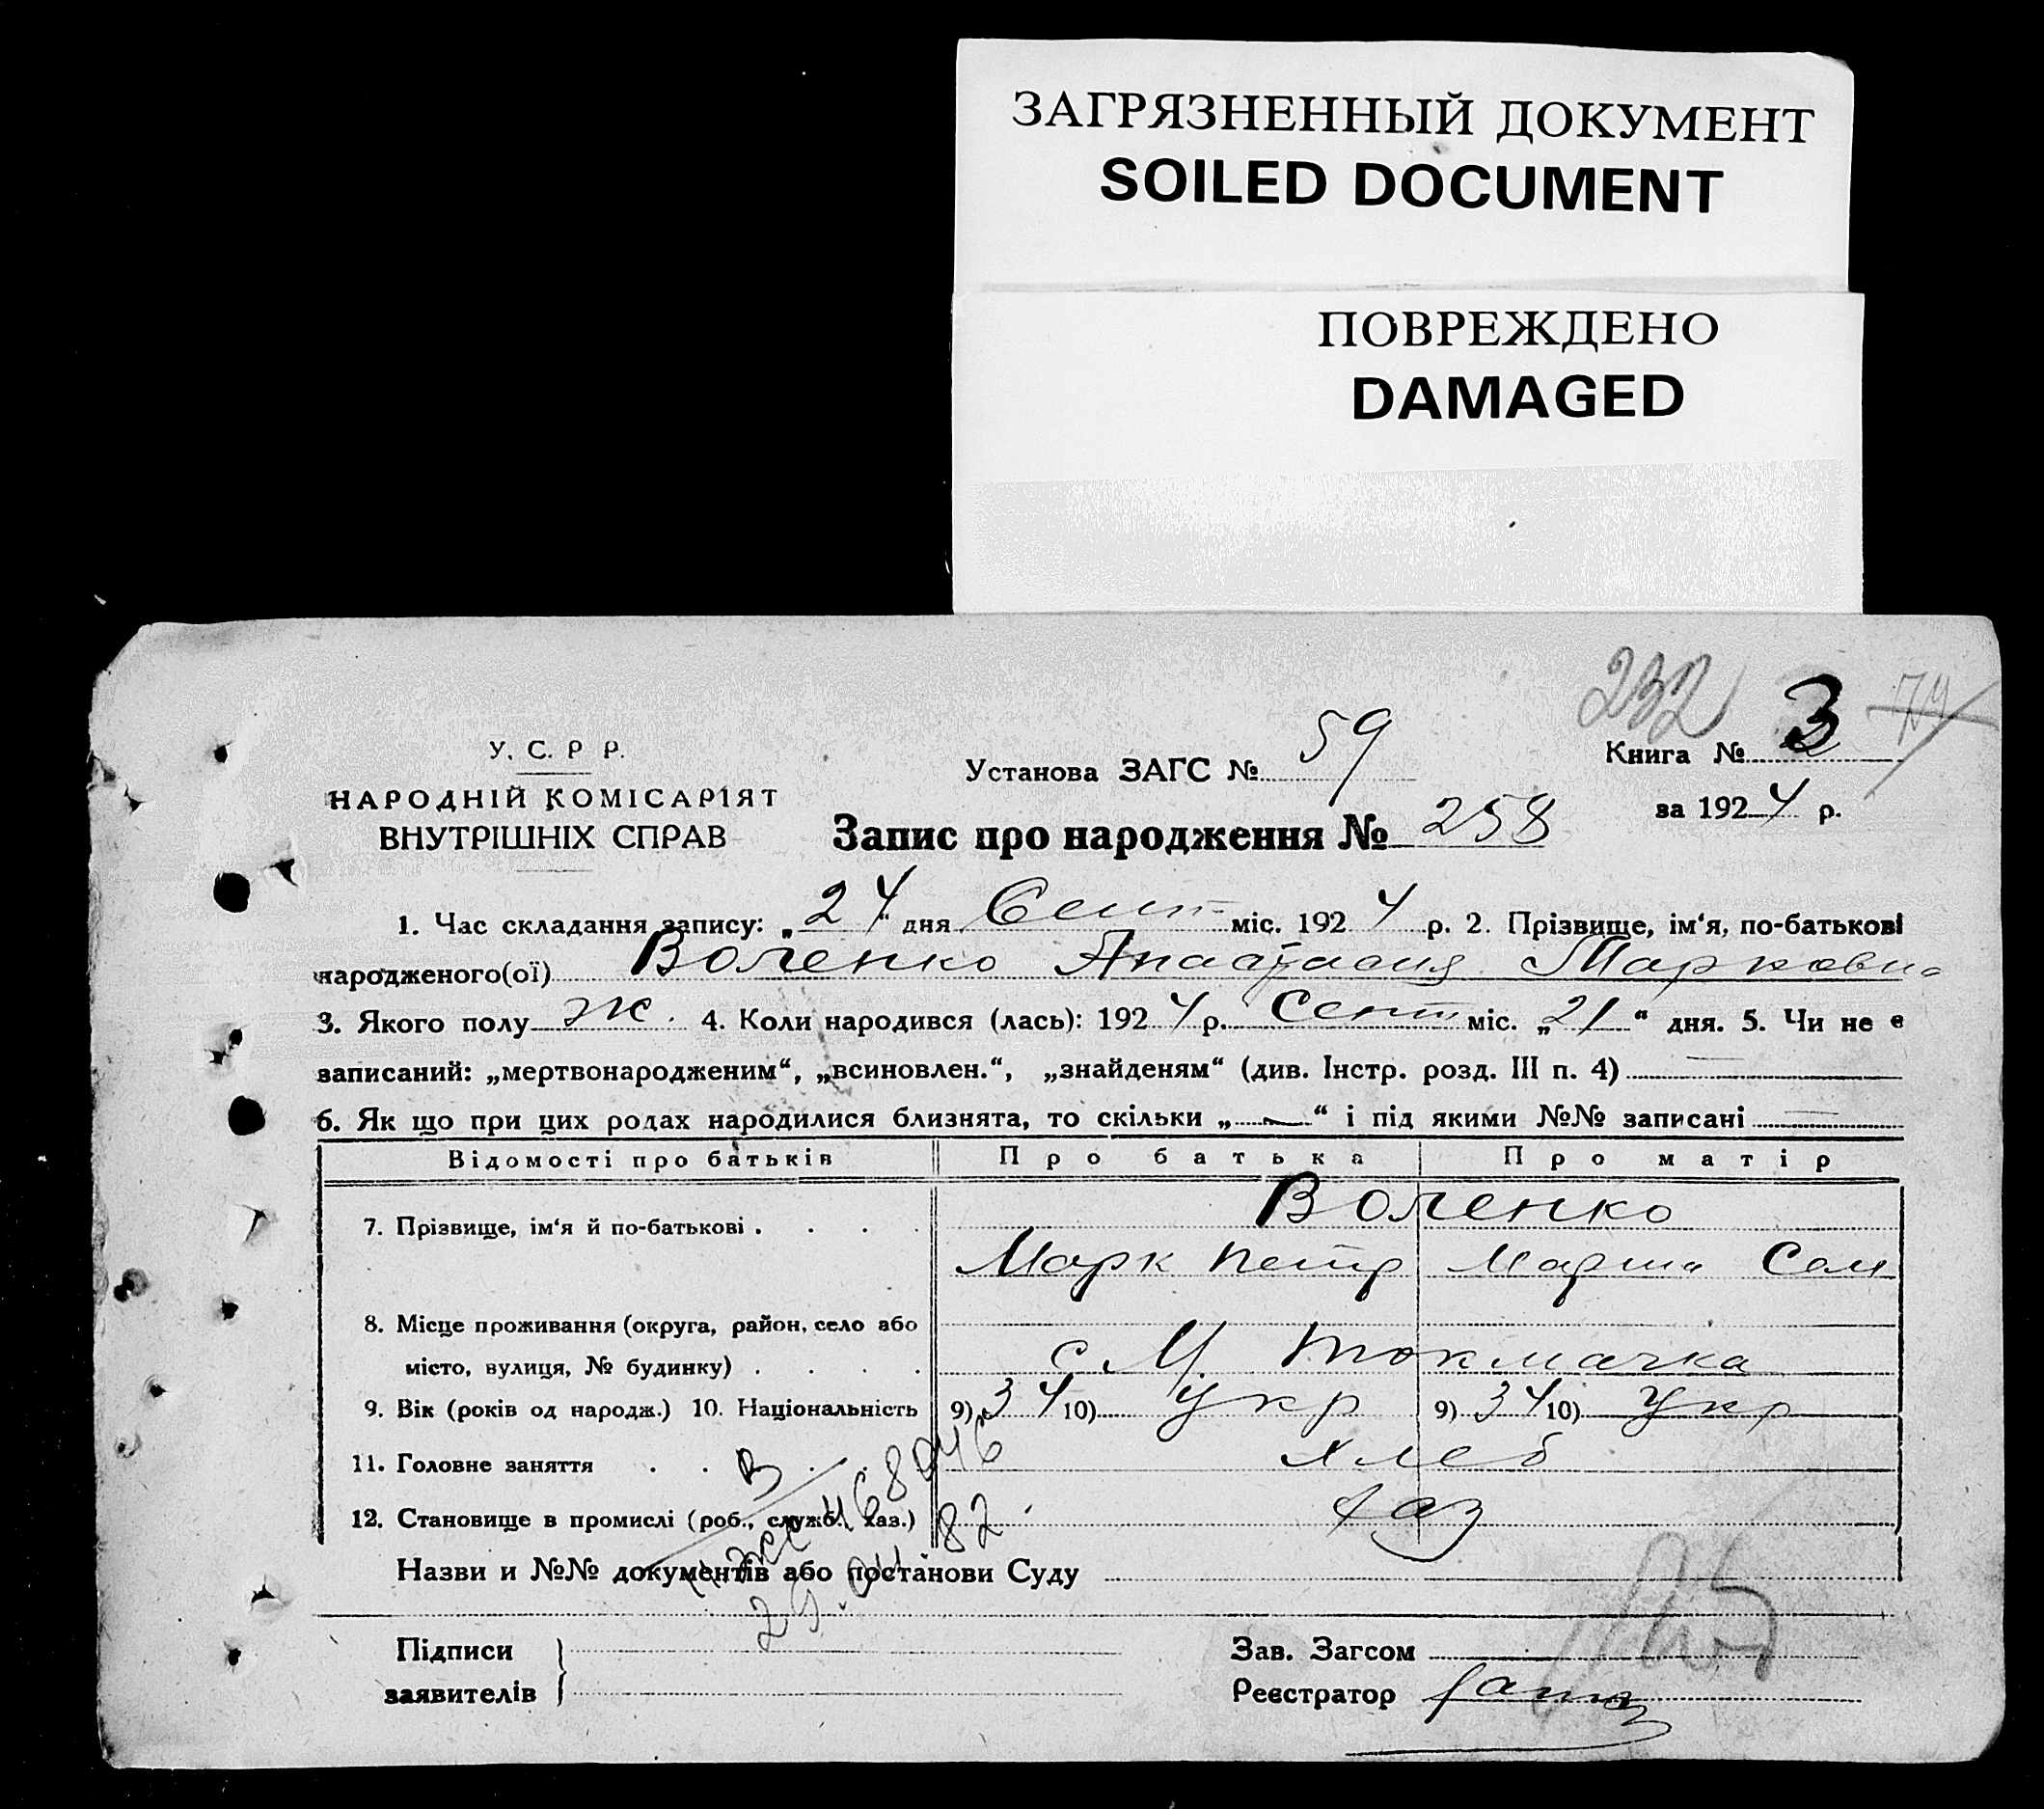 ЗАГРЯЗНЕННЫЙ ДОКУМЕНТ
SOILED DOCUMENT
ПОВРЕЖДЕНО
DAMAGED
232 3 74
У. С. Р Р.
НАРОДНІЙ КОМІСАРІЯТ
ВНУТРІШНІХ СПРАВ
Установа ЗАГС № 59
Книга №
за 1924 р.
Запис про народження № 258
1. Час складання запису: „24“ дня Сент міс. 1924 р. 2. Прізвище, ім‘я, по-батькові
народженого(ої) Воленко Анастасия Марковна
3. Якого полу ж. 4. Коли народився (лась): 1924 р. Сент міс. „21“ дня. 5. Чи не є
записаний: „мертвонародженим“, „всиновлен.“, „знайденям“ (див. Інстр. розд. III п. 4) —
6. Як що при цих родах народилися близнята, то скільки „—“ і під якими №№ записані —
Відомості про батьків Про батька Про матір
7. Прізвище, ім‘я й по-батькові . . . . Воленко
Марк Петр Мария Сем
8. Місце проживання (округа, район, село або
місто, вулиця, № будинку) . . . . с. М Токмачка
9. Вік (років од народж.) 10. Національність 9) 34 10) Укр 9) 34 10) Укр
11. Головне заняття . . . . Хлеб
12. Становище в промислі (роб., служб., хаз.) хаз
Назви и №№ документів або постанови Суду
Підписи
заявителів
Зав. Загсом
Реєстратор